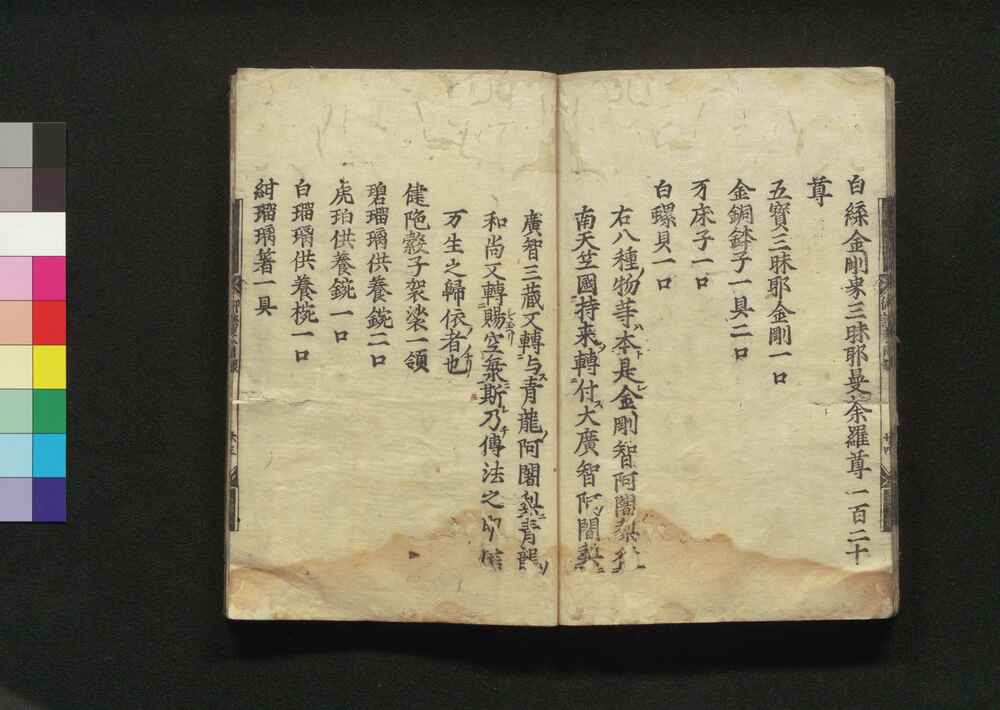 白緤金剛界三昧耶曼荼羅尊一百二十
尊
五寳三昧耶金剛一口
金銅鉢子一具二口
牙床子一口
白螺貝一口
右八種物等本是金剛智阿闍梨從
南天竺國持来轉付大廣智阿闍梨
廣智三蔵又轉与青龍阿闍梨青龍
和尚又轉賜空海斯乃傳法之印信
万生之歸依者也
健陁縠子袈裟一領
碧瑠璃供養鋺二口
虎珀供養鋺一口
白瑠璃供養椀一口
紺瑠璃箸一具